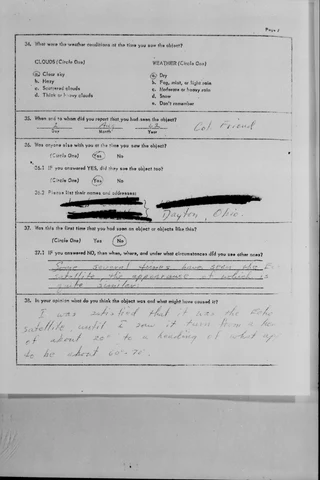 Page 5
34. What were the weather conditions at the time you saw the object?
CLOUDS (Circle One) WEATHER (Circle One)
a. Clear sky a. Dry
b. Hazy b. Fog, mist, or light rain
c. Scattered clouds c. Moderate or heavy rain
d. Thick or heavy clouds d. Snow
e. Don't remember
35. When and to whom did you report that you had seen the object?
2 Aug 62 Col. Friend
Day Month Year
36. Was anyone else with you at the time you saw the object?
(Circle One) Yes No
36.1 IF you answered YES, did they see the object too?
(Circle One) Yes No
36.2 Please list their names and addresses:
Dayton, Ohio.
37. Was this the first time that you had seen an object or objects like this?
(Circle One) Yes No
37.1 IF you answered NO, then when, where, and under what circumstances did you see other ones?
several times have seen the
satellite the appearance of which is
quite similar.
38. In your opinion what do you think the object was and what might have caused it?
I was satisfied that it was the echo
satellite until I saw it turn from a
of about 20° to a heading of
to be about 60°-70°.